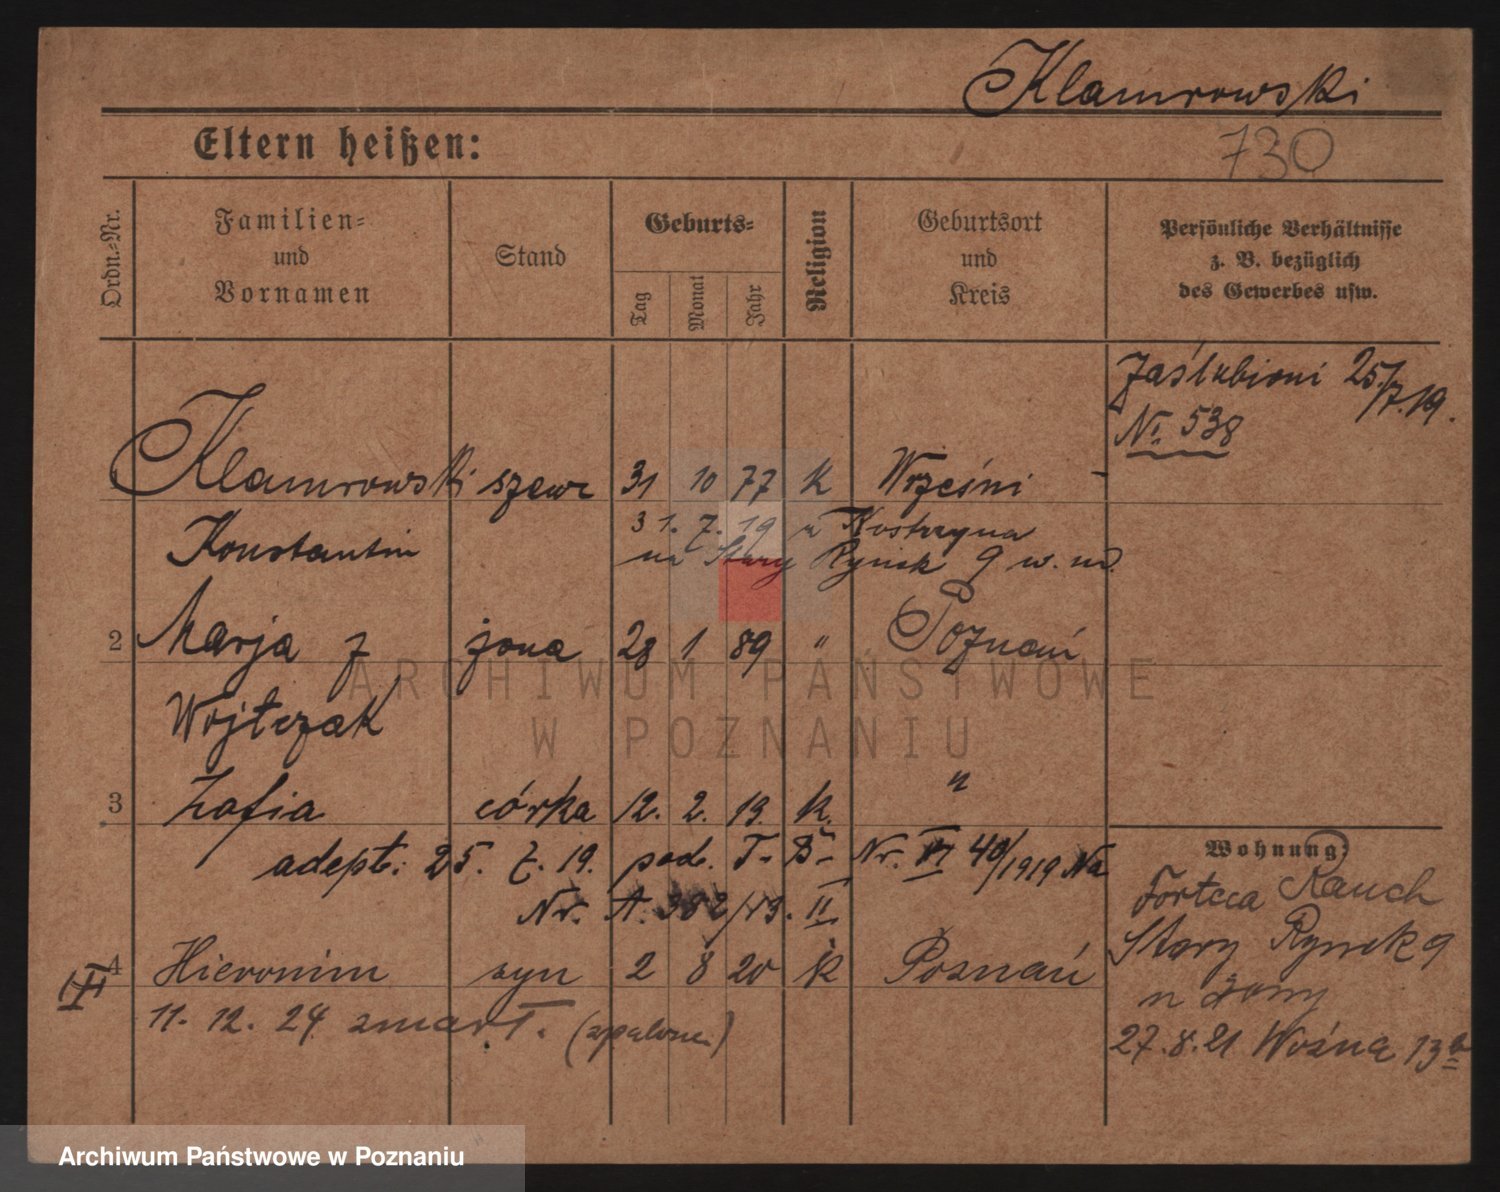 Klamrowski
Eltern heißen:
730
Ordn.=Nr.
Familien=
und
Vornamen
Stand
Geburts=
Tag
Monat
Jahr
Religion
Geburtsort
und
Kreis
Persönliche Verhältnisse
z. B. bezüglich
des Gewerbes usw.
Zaślubieni 25/7.19.
Nr. 538
Klamrowski szewc 31 10 77 K Wrześni
Konstantin
31. 7. 19 z Kostrzyna
na Stary Rynek 9 w. m.
2 Marja z żona 28 1 89 " Poznań
Wojtczak
3 Zofia córka 12. 2. 19. k. "
adept: 25. 7. 19. pod. T. B. Nr. VI 40/1919 Na
Nr. A. 382/19. II
4 Hieronim syn 2 8 20 k Poznań
11. 12. 24 zmarł.
Wohnung
Forteca Rauch
Stary Rynek 9
u żony
27.8.21 Woźna 13b
ARCHIWUM PAŃSTWOWE
W POZNANIU
Archiwum Państwowe w Poznaniu